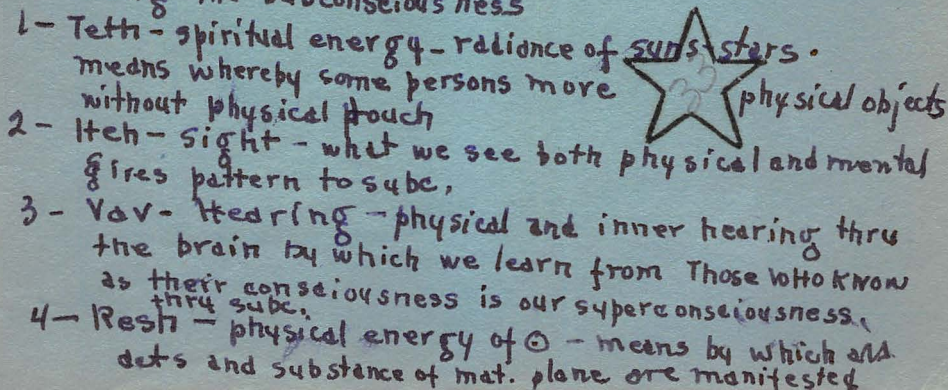 the subconsciousness
1- Teth - spiritual energy - radiance of suns stars.
means whereby some persons more physical objects
without physical touch
2- Heh - Sight - what we see both physical and mental
gives pattern to subc,
3- Vav - Hearing - physical and inner hearing thru
the brain by which we learn from Those Who Know
as their consciousness is our superconsciousness,
thru subc.
4- Resh - physical energy of ☉ - means by which all
and substance of mat. plane are manifested